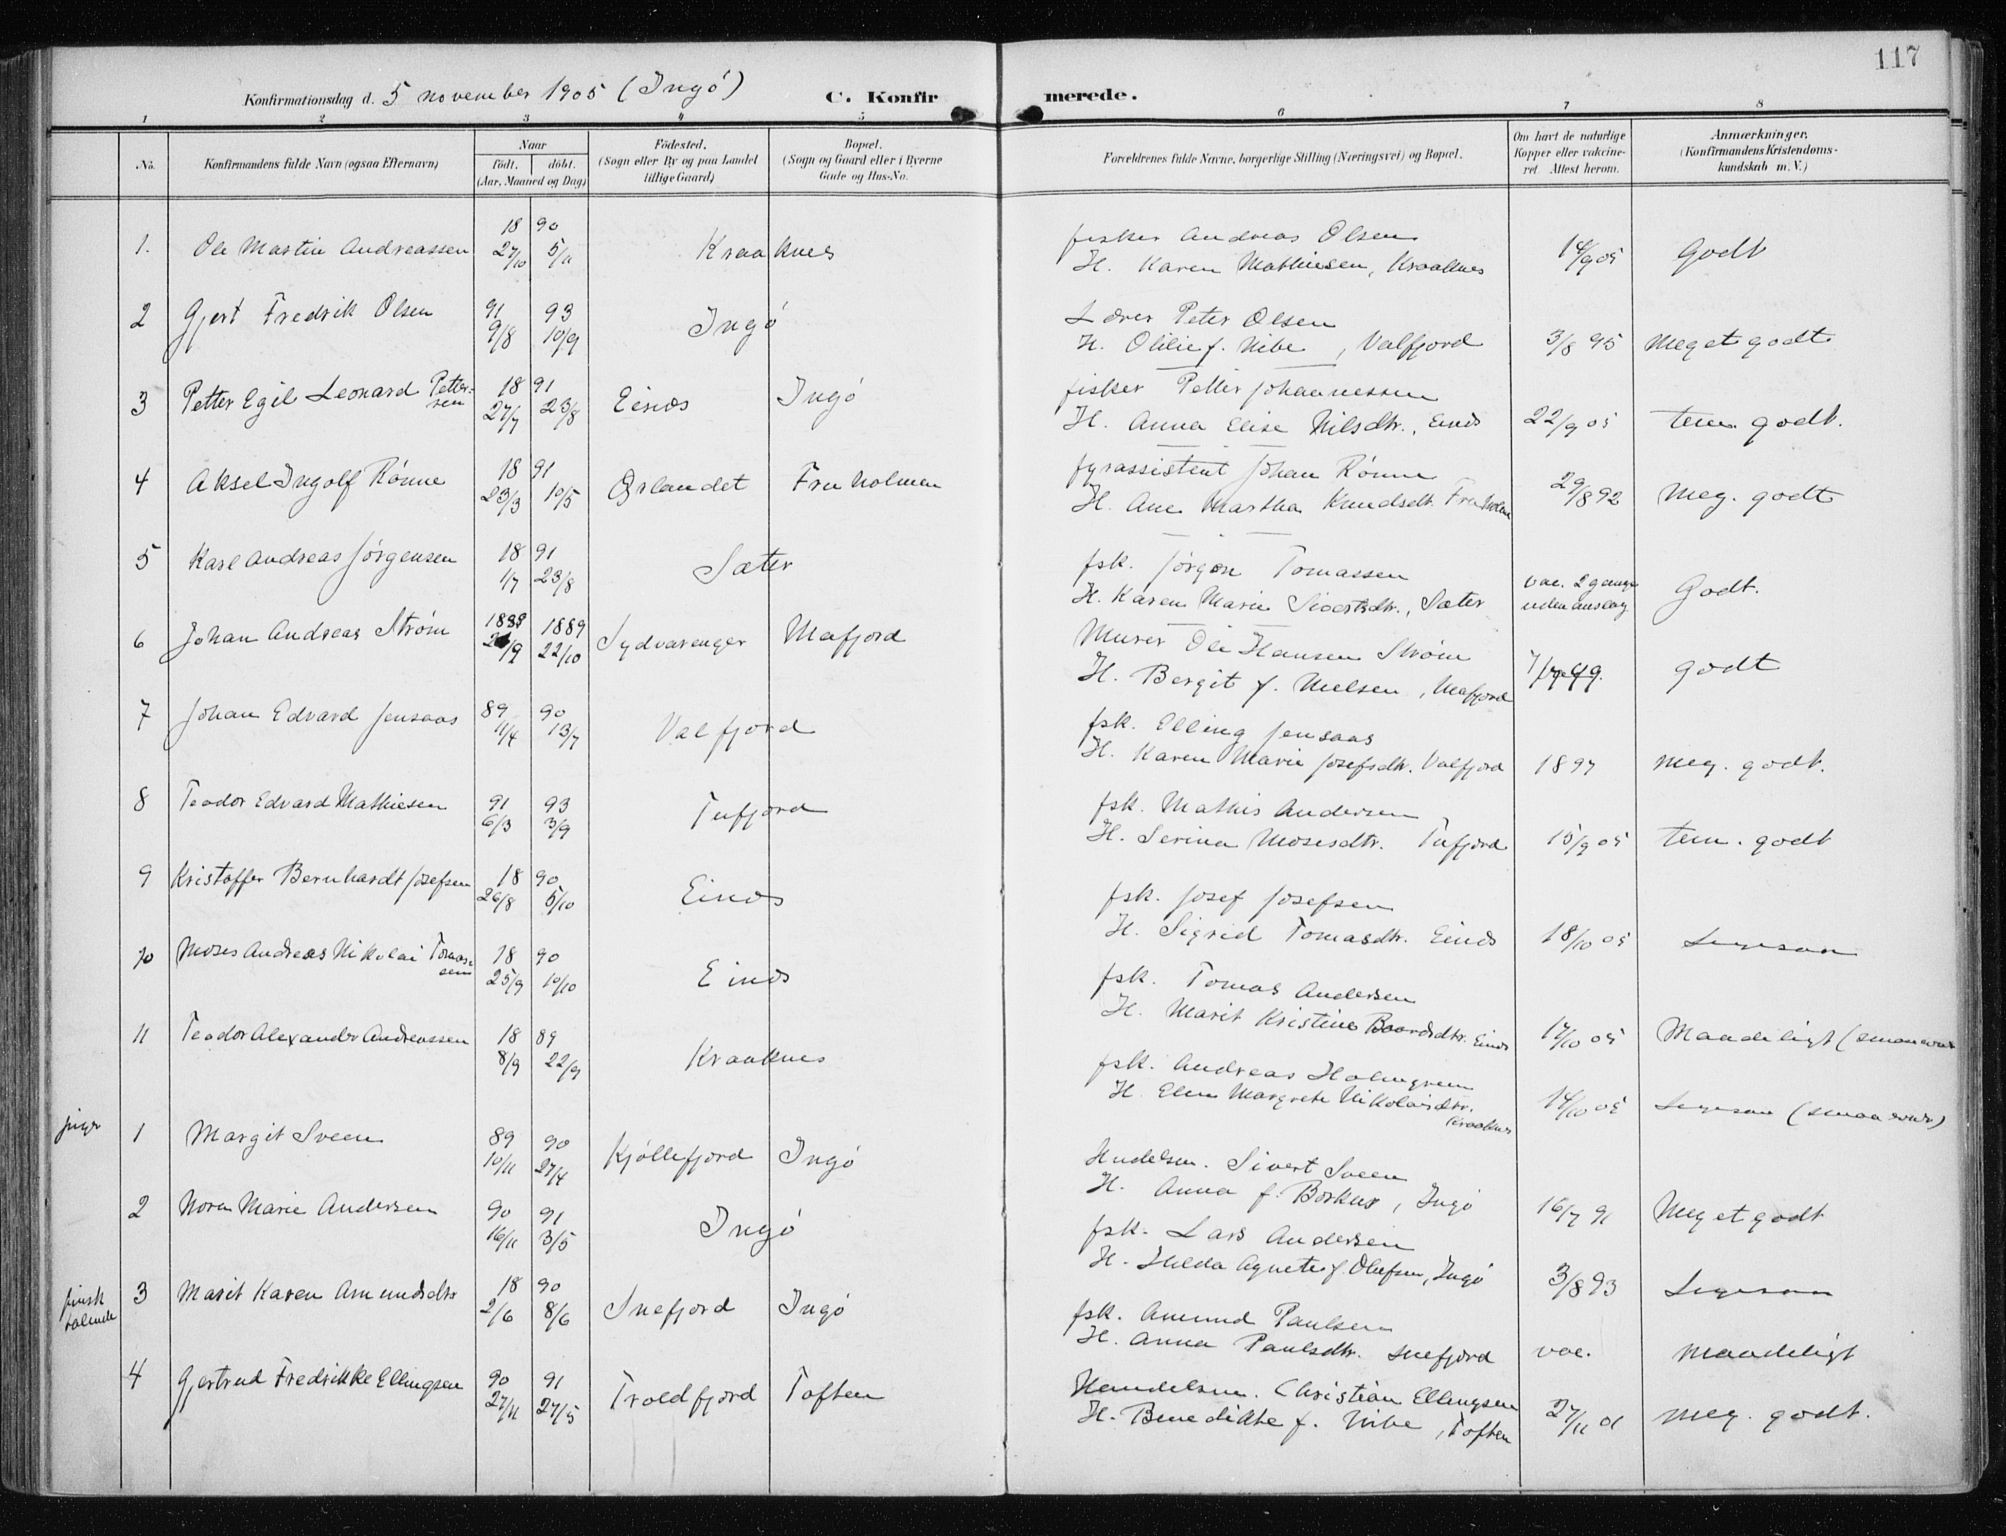 117
Konfirmationsdag d. 5 november 1905 (Ingö)
C. Konfirmerede.
1 2 3 4 5 6 7 8
No. Konfirmandens fulde Navn (ogsaa Efternavn) Naar födt. döbt. (Aar, Maaned og Dag) Födested. (Sogn eller By og paa Landet tillige Gaard) Bopæl. (Sogn og Gaard eller i Byerne Gade og Hus-No. Forældrenes fulde Navne, borgerlige Stilling (Næringsvei) og Bopæl. Om havt de naturlige Kopper eller vakcineret Attest herom. Anmærkninger. (Konfirmandens Kristendomskundskab m. V.)
18 90 fisker Andreas Olsen
1. Ole Martin Andreassen 27/10 5/11 Kraaknes H. Karen Mathiesen, Kraaknes 14/9 05 Godt
91 93 Lærer Peter Olsen
2 Gjert Fredrik Olsen 9/8 10/9 Ingö H. Olilie f. Nibe, Valfjord 3/8 95 Meget godt
18 91 fisker Petter Johannessen
3 Petter Egil Leonard Pettersen 27/7 23/8 Einæs Ingö H. Anna Elise Nilsdtr., Einæs 22/9 05 tem. godt.
18 91 fyrassistent Johan Rönne
4 Aksel Ingolf Rönne 23/3 10/5 Örlandet Fruholmen H. Ane Martha Knudsdtr. Fruholm 29/8 92 Meg. godt
18 91 fsk. Jörgen Tomassen
5 Karl Andreas Jörgensen 1/7 23/8 Sæter H. Karen Marie Sivertsdtr., Sæter vac. 2 gange uden anslag Godt.
1888 1889 Murer Ole Hansen Ström
6 Johan Andreas Ström /9 22/10 Sydvaranger Mafjord H. Bergit f. Nielsen, Mafjord godt
89 90 fsk. Elling Jensaas
7 Johan Edvard Jensaas 11/4 13/7 Valfjord H. Karen Marie Josefsdtr. Valfjord 1897 Meg. godt.
91 93 fsk. Mathis Andersen
8 Teodor Edvard Mathiesen 6/3 3/9 Tufjord H. Serina Mosesdtr. Tufjord 15/9 05 tem. godt
18 90 fsk. Josef Josefsen
9 Kristoffer Bernhardt Josefsen 26/8 5/10 Einæs H. Sigrid Tomasdtr. Einæs 18/10 05 Ligesaa
18 90 fsk. Tomas Andersen
10 Moses Andreas Nikolai Tomassen 25/9 10/10 Einæs H. Marit Kristine Baardsdtr. Einæs 17/10 05 Maadeligt (smaa evner
18 89 fsk. Andreas Holmgren
11 Teodor Alexander Andreassen 8/9 22/9 Kraaknes H. Elen Margrete Nikolaisdtr. Kraaknes 14/10 05 Ligesaa (smaa evner)
piger
89 90 Handelsm. Sivert Sveen
1 Margit Sveen 10/11 27/4 Kjöllefjord Ingö H. Anna f. Borkus, Ingö 16/7 91 Meget godt
90 91 fsk. Lars Andersen
2 Nora Marie Andersen 16/11 3/5 Ingö H. Hilda Agnete f. Olufsen, Ingö 3/8 93 Ligesaa
18 90 fsk. Amund Paulsen
finsk talende 3 Marit Karen Amundsdtr 2/6 8/6 Snefjord Ingö H. Anna Paulsdtr. Snefjord vac. Maadeligt
90 91 Handelsm. Christian Ellingsen
4 Gjertrud Fredrikke Ellingsen 27/11 27/5 Troldfjord Toften H. Benedikte f. Nibe, Toften 27/11 01 Meg. godt.